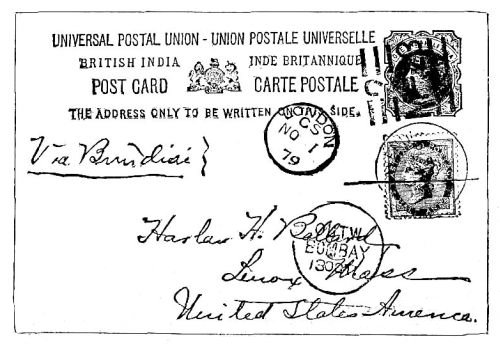 UNIVERSAL POSTAL UNION - UNION POSTALE UNIVERSELLE
BRITISH INDIA INDE BRITANNIQUE
POST CARD CARTE POSTALE
THE ADDRESS ONLY TO BE WRITTEN ON THIS SIDE.
LONDON
CS
NO 1
79
Via Brindisi
Harlan H. Ballard
BOMBAY
Lenox Mass
United States America.